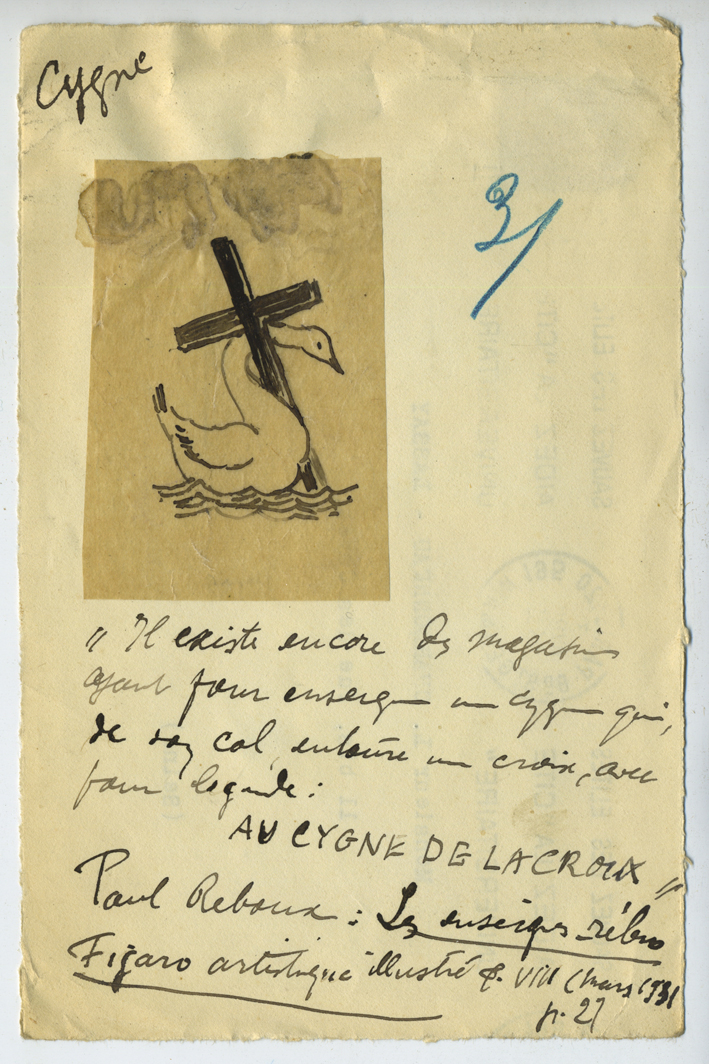 Cygne
31
" Il existe encore des magasins
ayant pour enseigne un cygne qui,
de son col, entoure un croix, avec
pour legende :
AU CYGNE DE LACROIX "
Paul Reboux : Les enseignes-rébus
Figaro artistique illustré VIII (mars 1931
p. 27